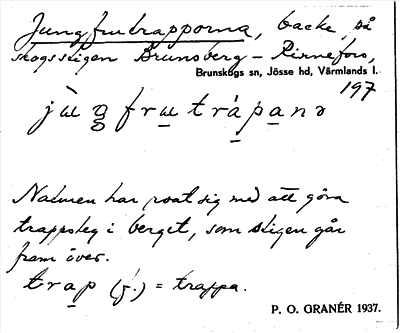 Jungfrutrapporna, backe, på
skogsstigen Brunsberg – Rinnefors,
Brunskogs sn, Jösse hd, Värmlands l.
197
jùŋfrutrápanə
Naturen har roat sig med att göra
trappsteg i berget, som stigen går
fram över.
trap (f.) = trappa.
P. O. GRANÉR 1937.